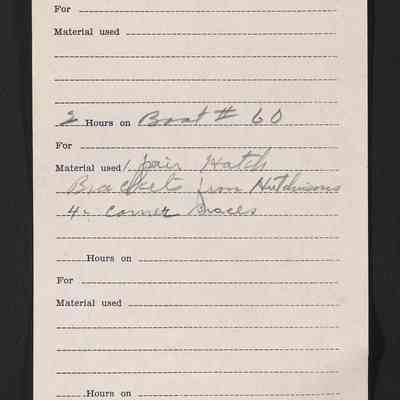 For
Material used
2 Hours on Boat # 60
For
Material used 1 pair Hatch
Brackets from Hutchinsons
4 - corner Braces
Hours on
For
Material used
Hours on